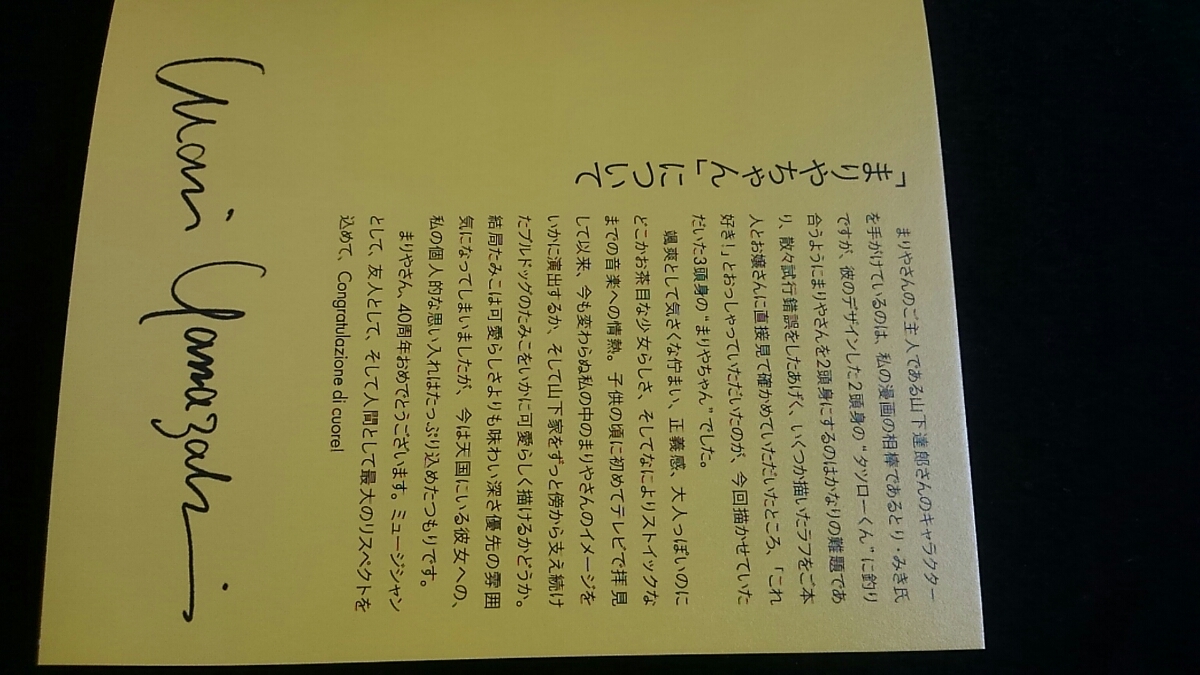 「まりやちゃん」について
まりやさんのご主人である山下達郎さんのキャラクター
を手がけているのは、私の漫画の相棒であるとり・みき氏
ですが、彼のデザインした2頭身の“タツローくん”に釣り
合うようにまりやさんを2頭身にするのはかなりの難題であ
り、散々試行錯誤をしたあげく、いくつか描いたラフをご本
人とお嬢さんに直接見て確かめていただいたところ、「これ
好き！」とおっしゃっていただいたのが、今回描かせていた
だいた3頭身の“まりやちゃん”でした。
颯爽として気さくな佇まい、正義感、大人っぽいのに
どこかお茶目な少女らしさ、そしてなによりストイックな
までの音楽への情熱。子供の頃に初めてテレビで拝見
して以来、今も変わらぬ私の中のまりやさんのイメージを
いかに演出するか、そして山下家をずっと傍から支え続け
たブルドッグのたみこをいかに可愛らしく描けるかどうか。
結局たみこは可愛らしさよりも味わい深さ優先の雰囲
気になってしまいましたが、今は天国にいる彼女への、
私の個人的な思い入れはたっぷり込めたつもりです。
まりやさん、40周年おめでとうございます。ミュージシャン
として、友人として、そして人間として最大のリスペクトを
込めて、Congratulazione di cuore!
Mari Yamazaki